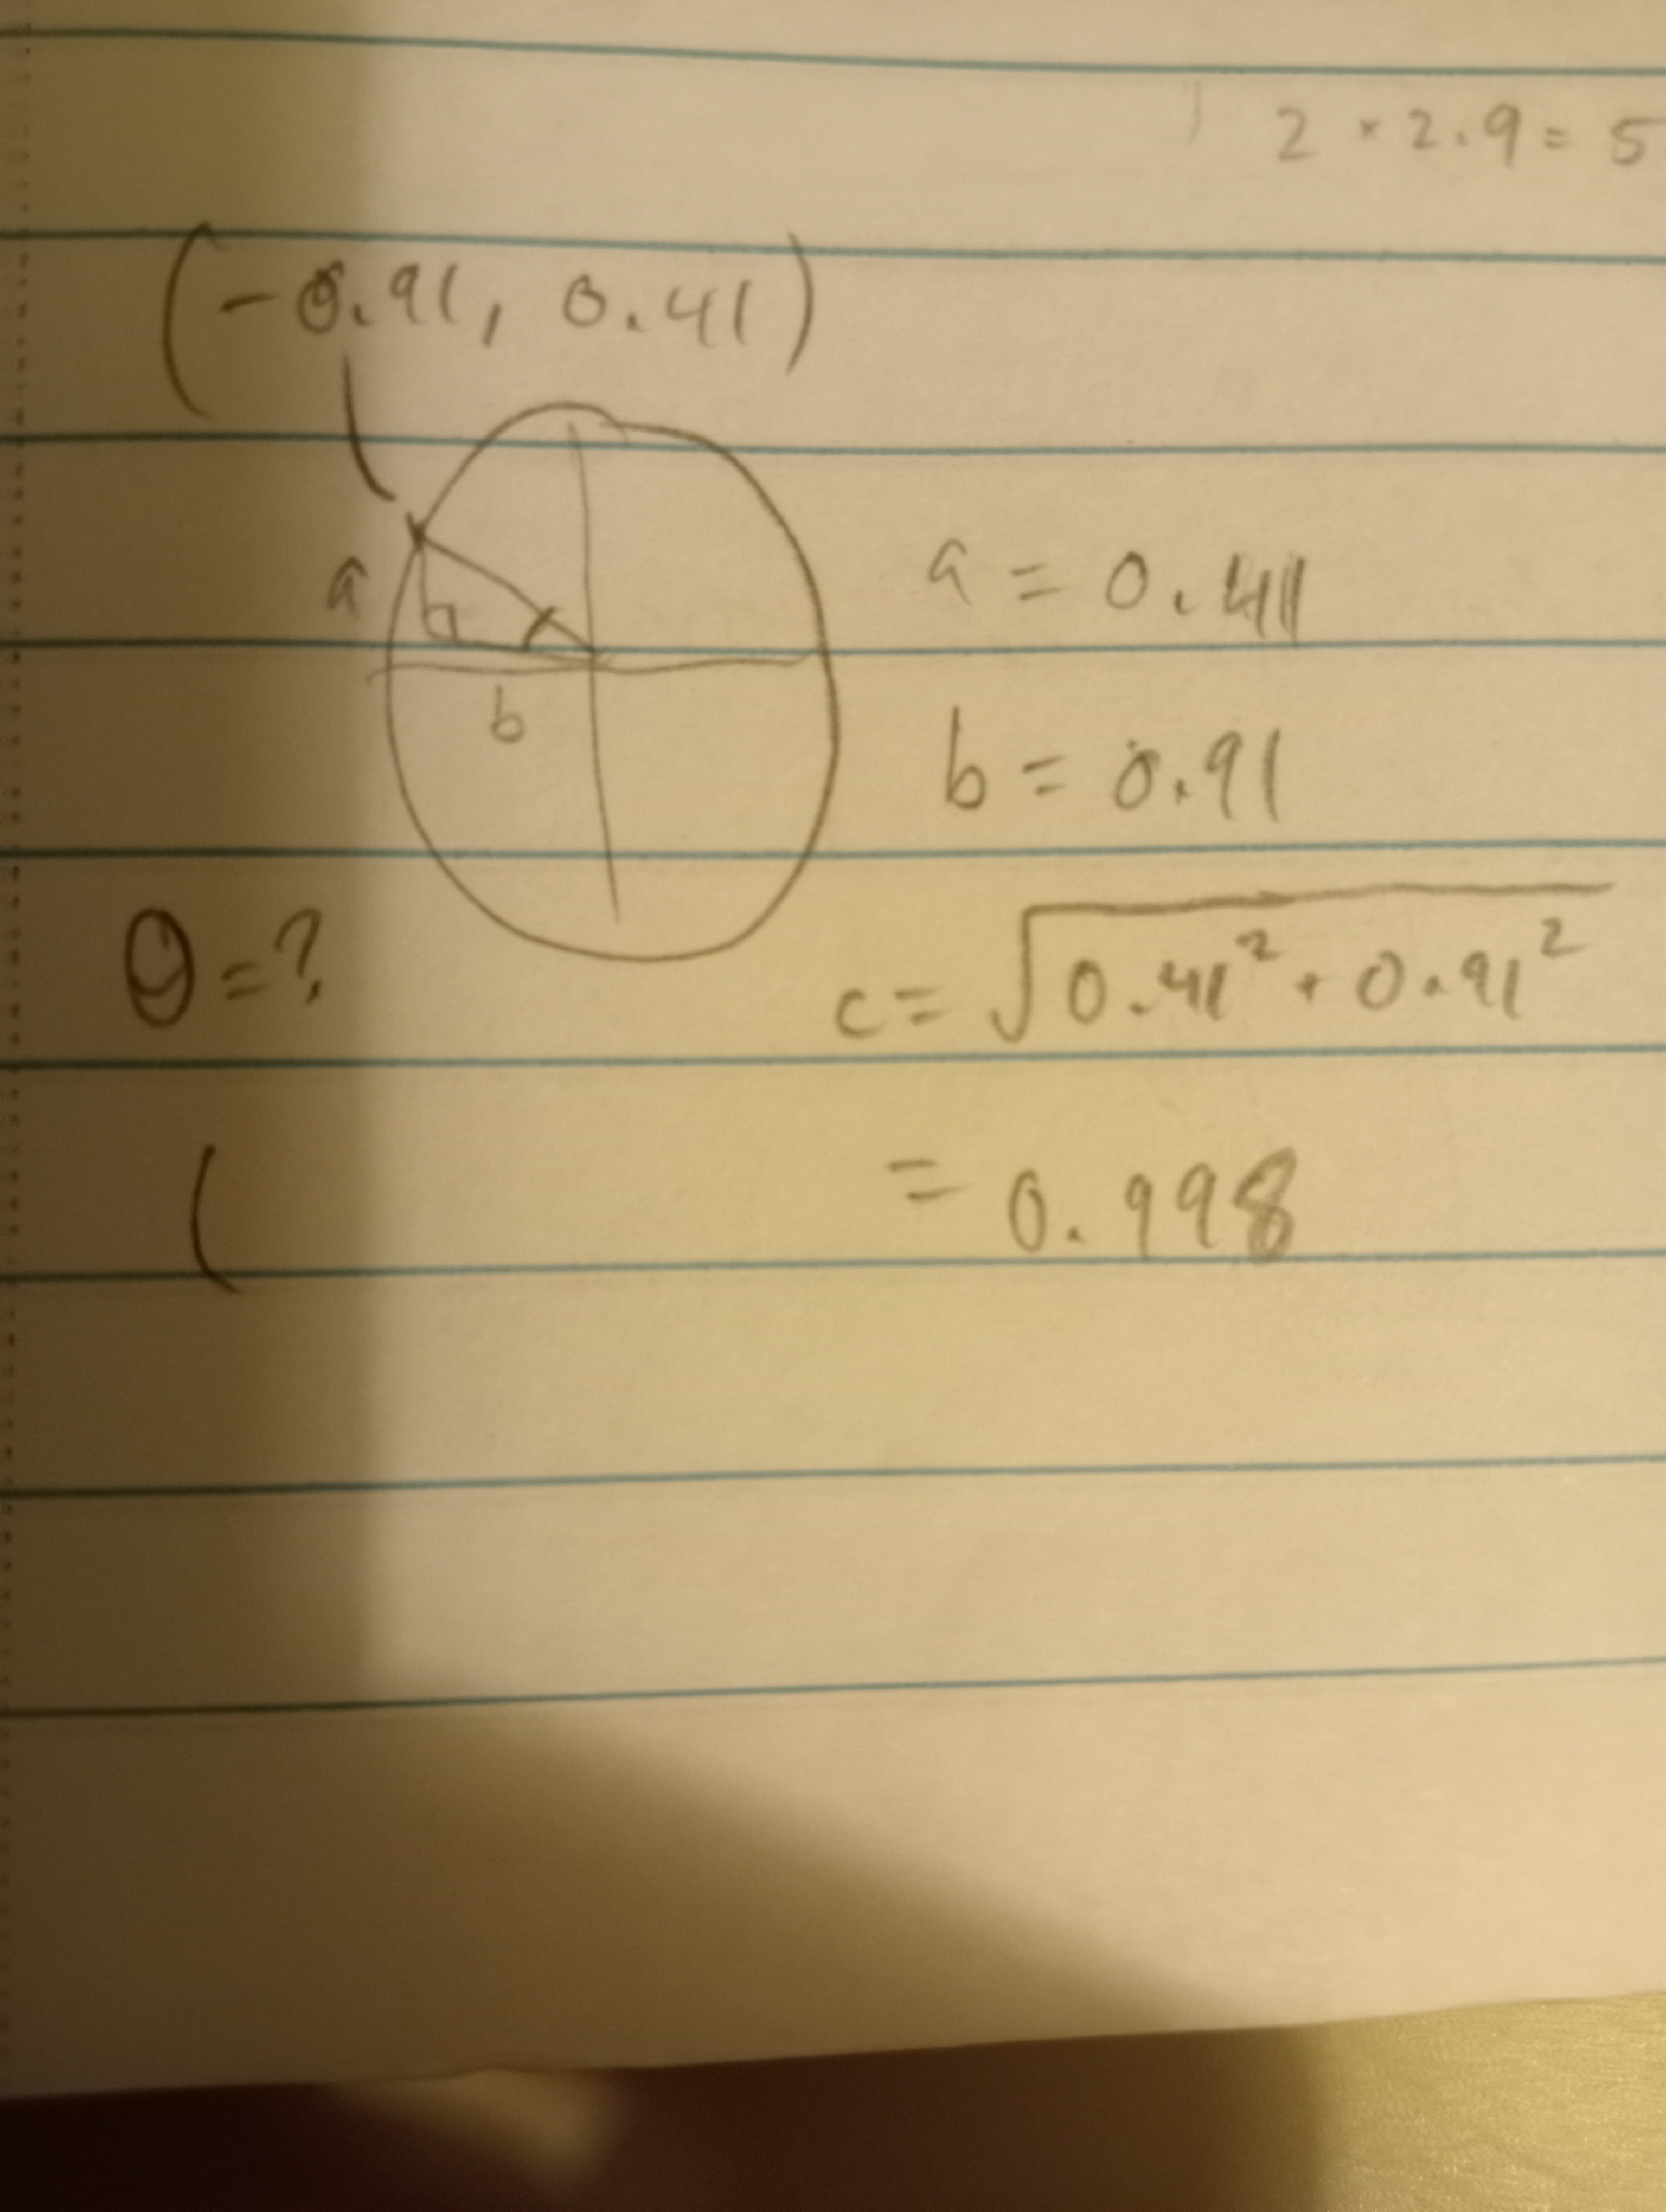 2 × 2.9 = 5
(-0.91, 0.41)
a
a = 0.41
b
b = 0.91
θ = ?
c = √0.41² + 0.91²
(
= 0.998